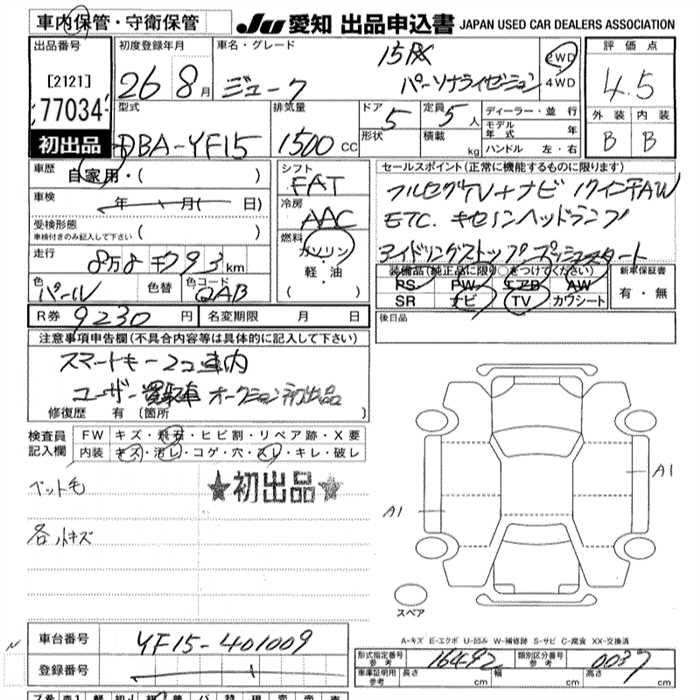 車内保管・守衛保管
JU 愛知 出品申込書 JAPAN USED CAR DEALERS ASSOCIATION
出品番号 初度登録年月 車名・グレード 評価点
[2121] 26 8月 ジューク 15RX 2WD 4.5
77034 パーソナライゼーション 4WD
型式 排気量 ドア 定員 ディーラー・並行 外装 内装
初出品 DBA-YF15 1500cc 5 5人 モデル年式 年 B B
形状 積載 kg ハンドル 左・右
車歴 自家用・( ) シフト FAT セールスポイント(正常に機能するものに限ります)
車検 年 月( 日) 冷房 AAC フルセグTV+ナビ 17インチAW
受検形態 ETC. キセノンヘッドランプ
車検付きのみ記入して下さい ( ) 燃料 ガソリン アイドリングストップ プッシュスタート
走行 8万8千793km ・軽・油
装備品(純正品に限り○をつけてください) 新車保証書
色 パール 色替 色コード QAB ・( ) PS PW エアB AW 有・無
SR ナビ TV カワシート
R券 9230円 名変期限 月 日 後日品
注意事項申告欄(不具合内容等は具体的に記入して下さい)
スマートキー2コ車内
ユーザー買取車 オークション初出品
修復歴 有 〔箇所 〕
検査員 FW キズ・飛石・ヒビ割・リペア跡・X要
記入欄 内装 キズ・汚レ・コゲ・穴・スレ・キレ・破レ
ペット毛 ★初出品★
A1
A1
各小キズ
スペア
A-キズ E-エクボ U-凹み W-補修跡 S-サビ C-腐食 XX-交換済
車台番号 YF15-401009
形式指定番号 参考 16492 類別区分番号 参考 0037
登録番号
車庫証明用 参考 長さ cm 幅 cm 高さ cm